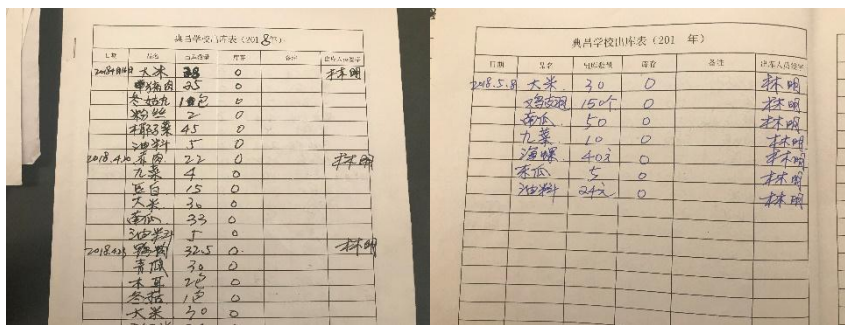 典昌学校出库表(2018年)
日期 品名 出库数量 库存 备注 出库人员签字
大米 0 林明
25 0
冬菇丸 1包 0
粉丝 2 0
椰菜 45 0
油料 5 0
2018.4.20 22 0 林明
九菜 4 0
豆白 15 0
大米 30 0
南瓜 33 0
油料 5 0
32.5 0 林明
青瓜 30 0
木耳 2包 0
冬菇 1包 0
大米 30 0
典昌学校出库表(201 年)
日期 品名 出库数量 库存 备注 出库人员签字
2018.5.8 大米 30 0 林明
150个 0 林明
南瓜 50 0 林明
九菜 10 0 林明
海螺 40 0 林明
冬瓜 5 0 林明
油料 24元 0 林明